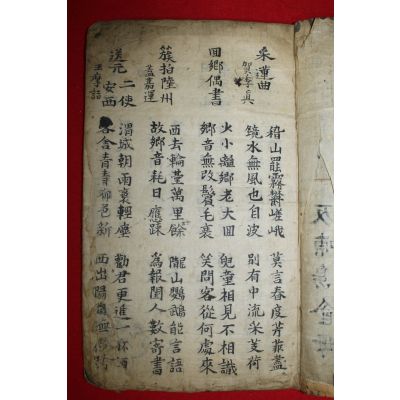 采蓮曲
賀季真
稽山罷霧鬱嵯峨 莫言春度芳菲盡
鏡水無風也自波 別有中流采芰荷
回鄉偶書
少小離鄉老大回 兒童相見不相識
鄉音無改鬢毛衰 笑問客從何處來
簇拍陸州
蓋嘉運
西去輪臺萬里餘 隴山鸚鵡能言語
故鄉音耗日應踈 為報閨人數寄書
送元二使安西
王摩詰
渭城朝雨裛輕塵 勸君更進一杯酒
客舍青青柳色新 西出陽關無